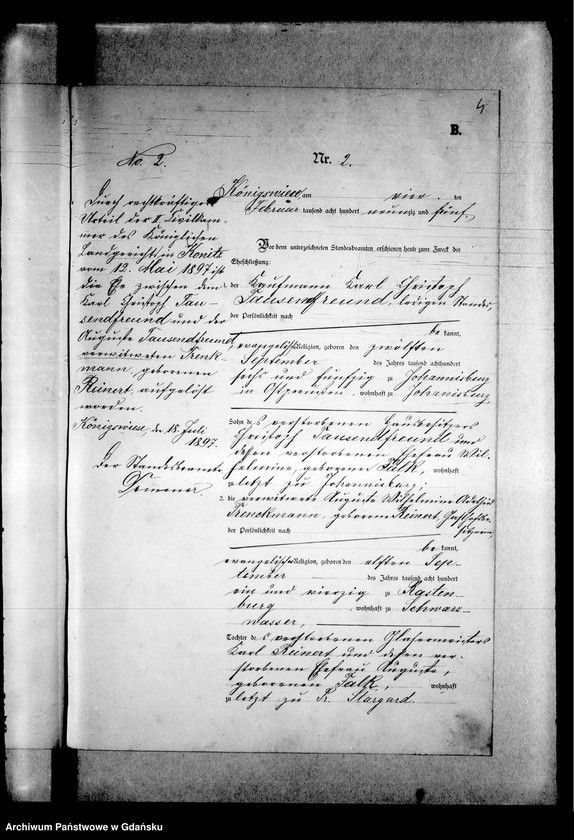 4
B.
No. 2.
Nr. 2.
Durch rechtskräftiges
Urteil der II. Civilkam-
mer des Königlichen
Landgerichts in Konitz
vom 12. Mai 1897 ist
die Ehe zwischen dem
Karl Christoph Tau-
sendfreund und der
Auguste Tausendfreund,
verwitweten Trenk-
mann, geborenen
Reinert, aufgelöst
worden.
Königswiese, den 18. Juli
1897.
Der Standesbeamte
Königswiese, am vier ten
Februar tausend acht hundert neunzig und fünf.
Vor dem unterzeichneten Standesbeamten erschienen heute zum Zweck der
Eheschließung:
der Kaufmann Karl Christoph
Tausendfreund, ledigen Standes,
der Persönlichkeit nach
be kannt,
evangelischer Religion, geboren den zwölften
September des Jahres tausend achthundert
sechs und fünfzig zu Johannisburg
in Ostpreußen, wohnhaft zu Johannisburg
Sohn des verstorbenen Hausbesitzers
Christoph Tausendfreund und
dessen verstorbenen Ehefrau Wil-
helmine, geborenen Falk wohnhaft
zuletzt zu Johannisburg;
2. die verwitwete Auguste Wilhelmine
Trenckmann, geborene Reinert, Gasthofbe-
sitzerin,
der Persönlichkeit nach
be kannt,
evangelischer Religion, geboren den elften Sep-
tember des Jahres tausend acht hundert
ein und vierzig zu Rasten-
burg, wohnhaft zu Schwarz-
wasser,
Tochter des verstorbenen Glasermeisters
Karl Reinert und dessen ver-
storbenen Ehefrau Auguste,
geborenen Falk, wohnhaft
zuletzt zu Pr. Stargard.
Archiwum Państwowe w Gdańsku